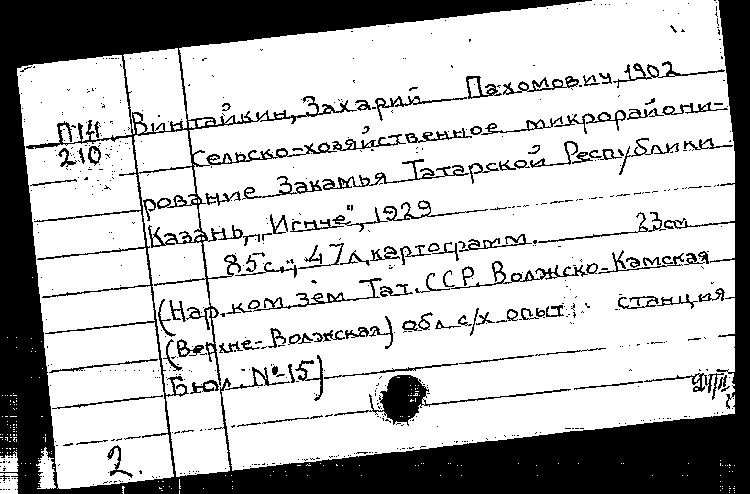 П14 Винтайкин, Захарий Пахомович, 1902
210 Сельско-хозяйственное микрорайони-
рование Закамья Татарской Республики
Казань, „Игнче", 1929
85 с.; 47 л. картограмм. 23 см
(Нар. ком. зем. Тат. ССР. Волжско-Камская
(Верхне-Волжская) обл с/х опыт. станция
Бюл. № 15)
2.